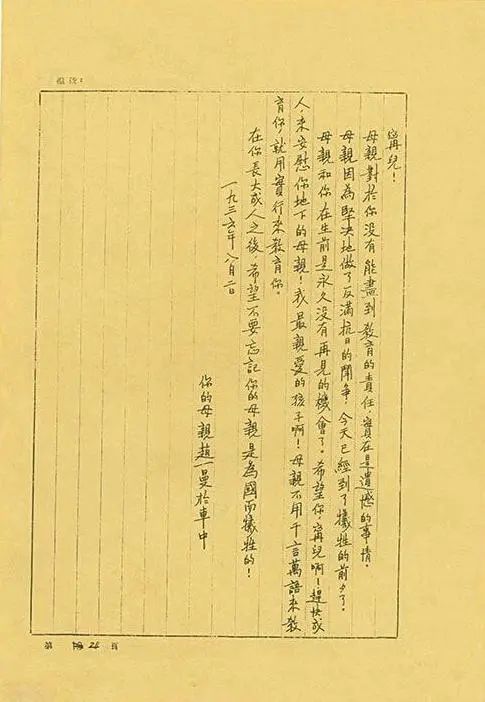 甯兒！
母親對於你没有能盡到教育的責任，實在是遺憾的事情。
母親因為堅決地做了反滿抗日的鬥争，今天已經到了犧牲的前夕了。
母親和你在生前是永久没有再見的機會了。希望你，甯兒啊！趕快成
人，來安慰你地下的母親！我最親愛的孩子啊！母親不用千言萬語來教
育你，就用實行來教育你。
在你長大成人之後，希望不要忘記你的母親是為國而犧牲的！
一九三六年八月二日
你的母親趙一曼於車中
第 24 頁